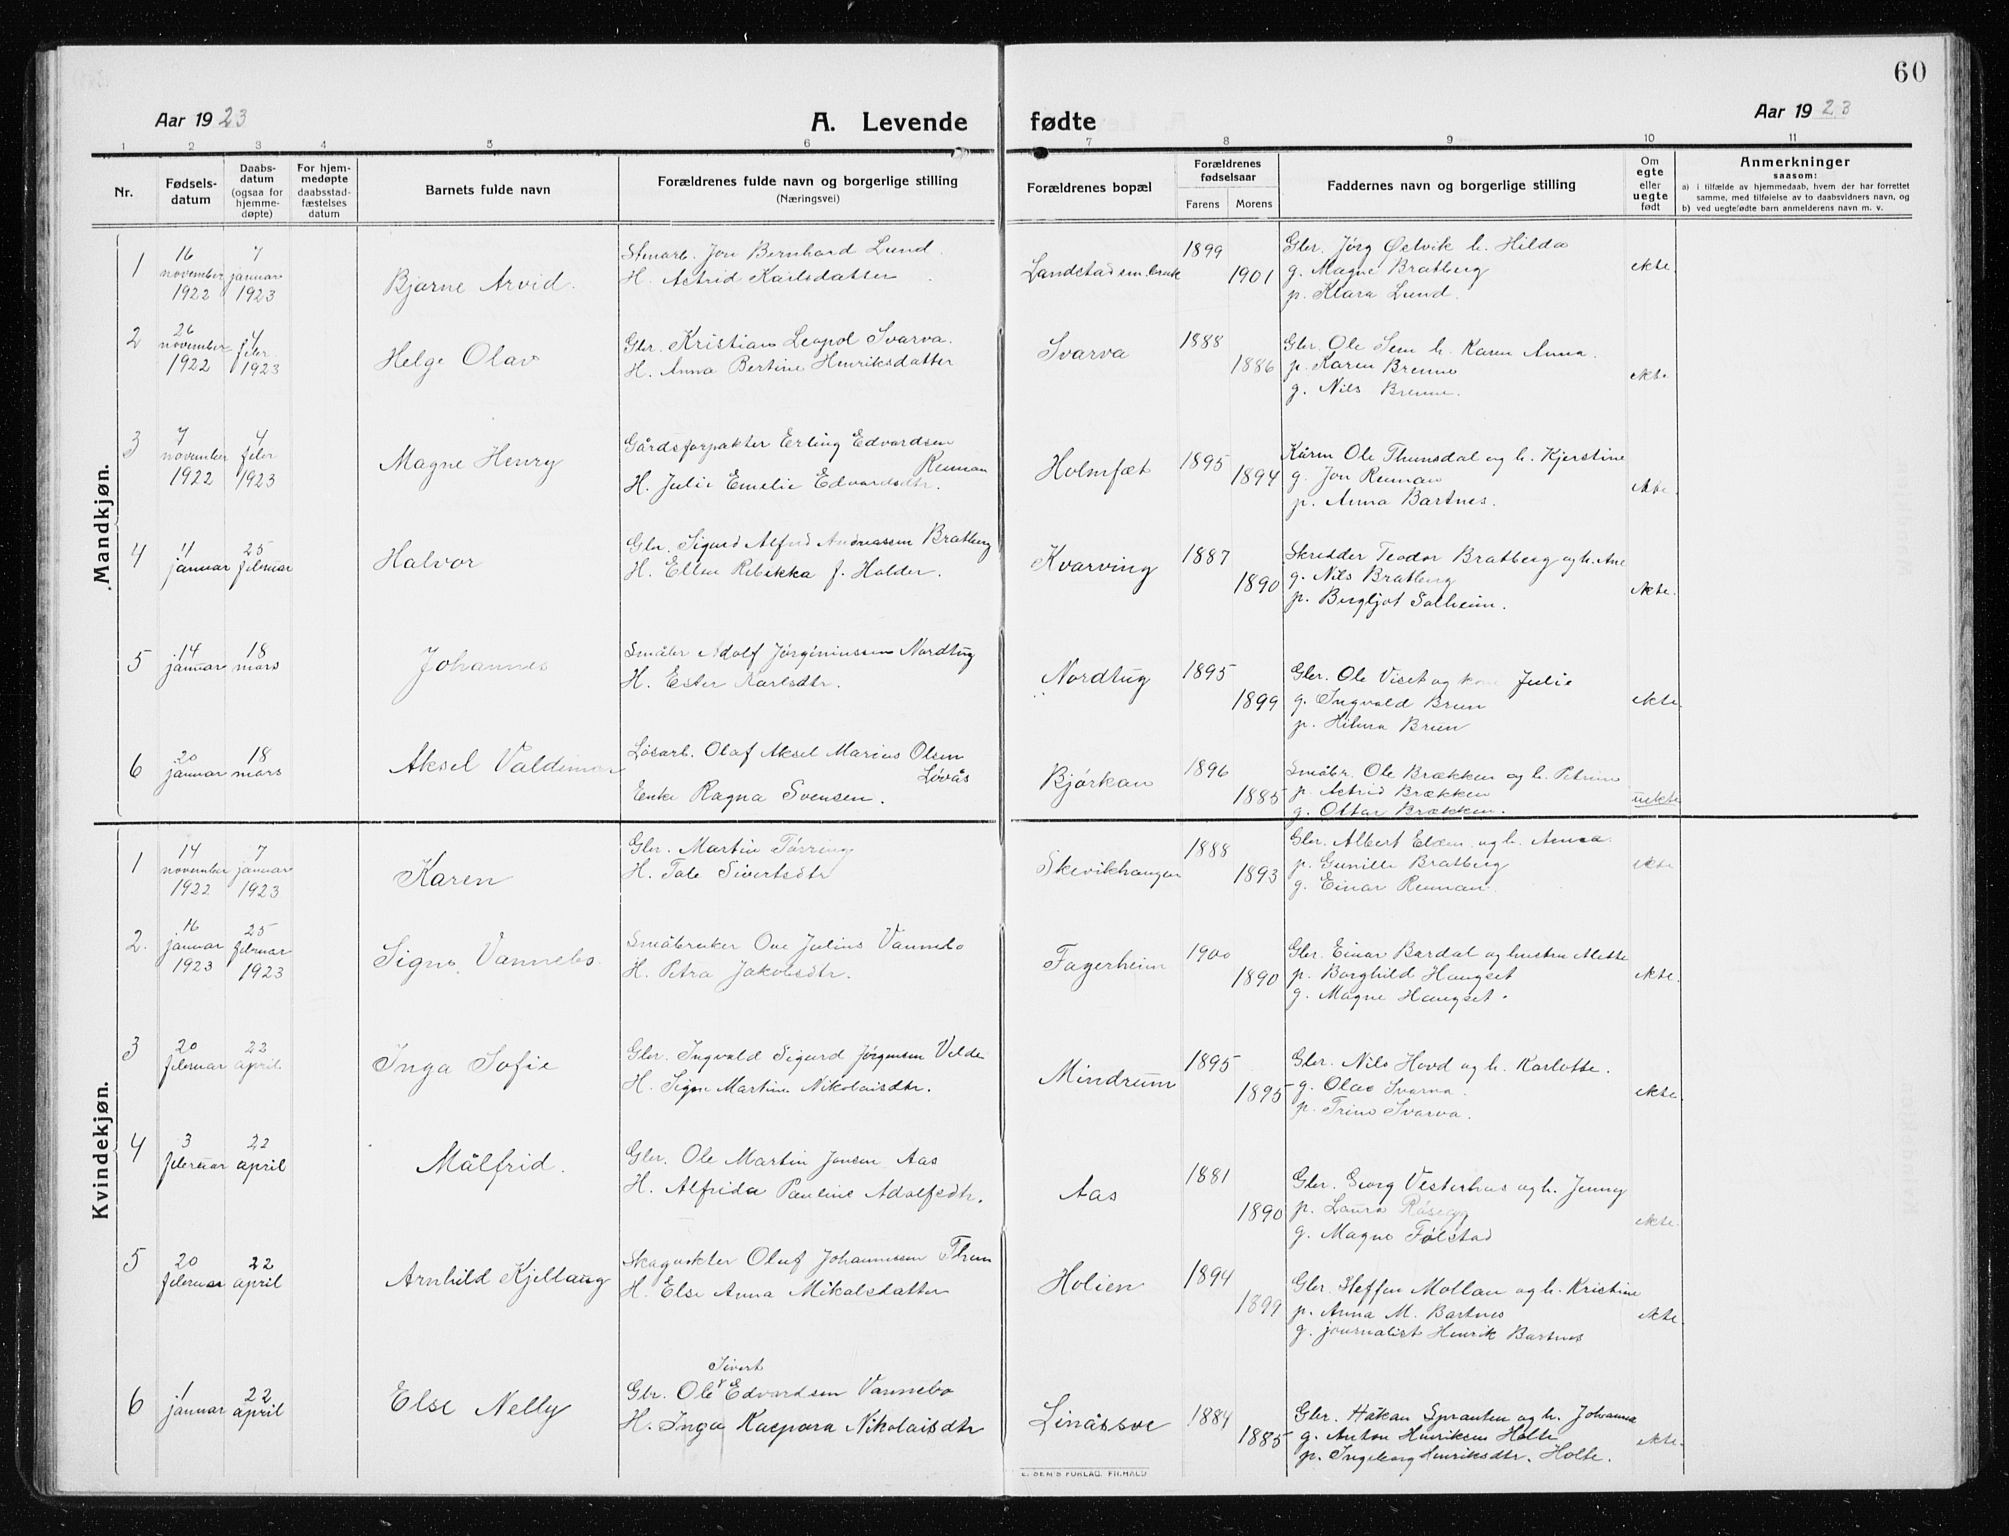 60
Aar 1923
A. Levende fødte
Aar 1923
1 2 3 4 5 6 7 8 9 10 11
Nr.
Fødsels-
datum
Daabs-
datum
(ogsaa for
hjemme-
døpte)
For hjem-
medøpte
daabsstad-
fæstelses
datum
Barnets fulde navn
Forældrenes fulde navn og borgerlige stilling
(Næringsvei)
Forældrenes bopæl
Forældrenes
fødselsaar
Farens Morens
Faddernes navn og borgerlige stilling
Om
egte
eller
uegte
født
Anmerkninger
saasom:
a) i tilfælde av hjemmedaab, hvem der har forrettet
samme, med tilføielse av to daabsvidners navn, og
b) ved uegtefødte barn anmelderens navn m. v.
Mandkjøn.
1
16
november
1922
7
januar
1923
Bjarne Arvid.
Stmarb. Jon Bernhard Lund.
H. Astrid Karlsdatter
Landstadsem. bruk
1899
1901
Gbr. Jørg Østvik h. Hilda
g. Magne Bratberg
p. Klara Lund.
ekte
2
26
november
1922
4
febr
1923
Helge Olav
Gbr. Kristian Leopol Svarva.
H. Anna Bertine Henriksdatter
Svarva
1888
1886
Gbr. Ole Sem h. Karen Anna.
p. Karen Brenne
g. Nils Brenne.
ekte
3
7
november
1922
4
febr
1923
Magne Henry
Gårdsforpakter Erling Edvardsen
Reuman
H. Julie Emelie Edvardsdtr.
Holmfæt
1895
1894
Kårm Ole Thunsdal og h. Kjerstine
g. Jon Reuman
p. Anna Bartnes.
ekte
4
4
januar
25
februar
Halvor
Gbr. Sigurd Alfred Andreassen Bratberg
H. Ellen Rebekka f. Halder.
Kvarving
1887
1890
Skredder Teodor Bratberg og h. Ane
g. Nils Bratberg
p. Bergljot Solheim.
ekte.
5
14
januar
18
mars
Johannes
Småbr Adolf Jørginiussen Nordtug
H. Ester Karlsdtr.
Nordtug
1895
1899
Gbr. Ole Viset og kone Julie
g. Ingvald Brun
p. Hilma Brun
ekte.
6
20
januar
18
mars
Aksel Valdemar
Løsarb. Olaf Aksel Marius Olsen
Løvås
Enke Ragna Svensen.
Bjørkan
1896
1885
Småbr. Ole Brækken og h. Petrine
p. Astrid Brækken
g. Ottar Brækken.
uekte
Kvindekjøn.
1
14
november
1922
7
januar
1923
Karen
Gbr. Martin Tørring
H. Tale Sivertsdtr
Skevikhaugen
1888
1893
Gbr. Albert Elden og h. Anna.
p. Gunille Bratberg
g. Einar Reuman.
ekte
2.
16
januar
1923
25
februar
1923
Signe Vannebo.
Småbruker Ove Julius Vannebo
H. Petra Jakobsdtr.
Fagerheim
1900
1890
Gbr. Einar Bardal og hustru Alette
p. Borghild Haugset
g. Magne Haugset.
ekte.
3
20
februar
22
april
Inga Sofie
Gbr. Ingvald Sigurd Jørgensen Velde
H. Signe Martine Nikolaisdtr.
Mindrum
1895
1895
Gbr. Nils Hovd og h. Karlotte.
g. Olav Svarva.
p. Trine Svarva.
ekte.
4
3
februar
22
april
Målfrid.
Gbr. Ole Martin Jensen Aas
H. Alfrida Pauline Adolfsdtr.
Aas
1881
1890
Gbr. Georg Vesterhus og h. Jenny
p. Laura Røsegg
g. Magne Følstad
ekte.
5
20
februar
22
april
Arnhild Kjellaug
Skogvokter Oluf Johannessen Thun
H. Else Anna Mikalsdatter
Holien
1894
1899
Gbr. Steffen Mollan og h. Kristine
p. Anna M. Bartnes
g. journalist Henrik Bartnes
ekte.
6
1
januar
22
april
Else Nelly
Sivert
Gbr. Ole Edvardsen Vannebo
H. Inga Kaspara Nikolaisdtr
Linåssve
1884
1885
Gbr. Håkan Sprauten og h. Johanna
g. Anton Henriksen Holte
p. Ingeborg Henriksdtr. Holte.
ekte.
E. SEM'S FORLAG, FR.HALD